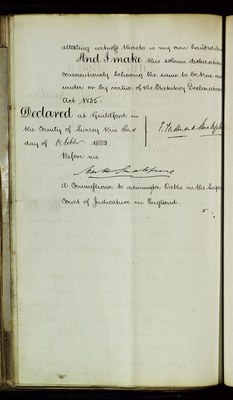 attesting myself thereto is my own handwriting
And I make this solemn declaration
conscientiously believing the same to be true and
under or by virtue of the Statutory Declaration
Act 1835.
Declared at Guildford in
the County of Surrey this third
day of October 1882
Before me
A Commissioner to administer Oaths in the Supreme
Court of Judicature in England.